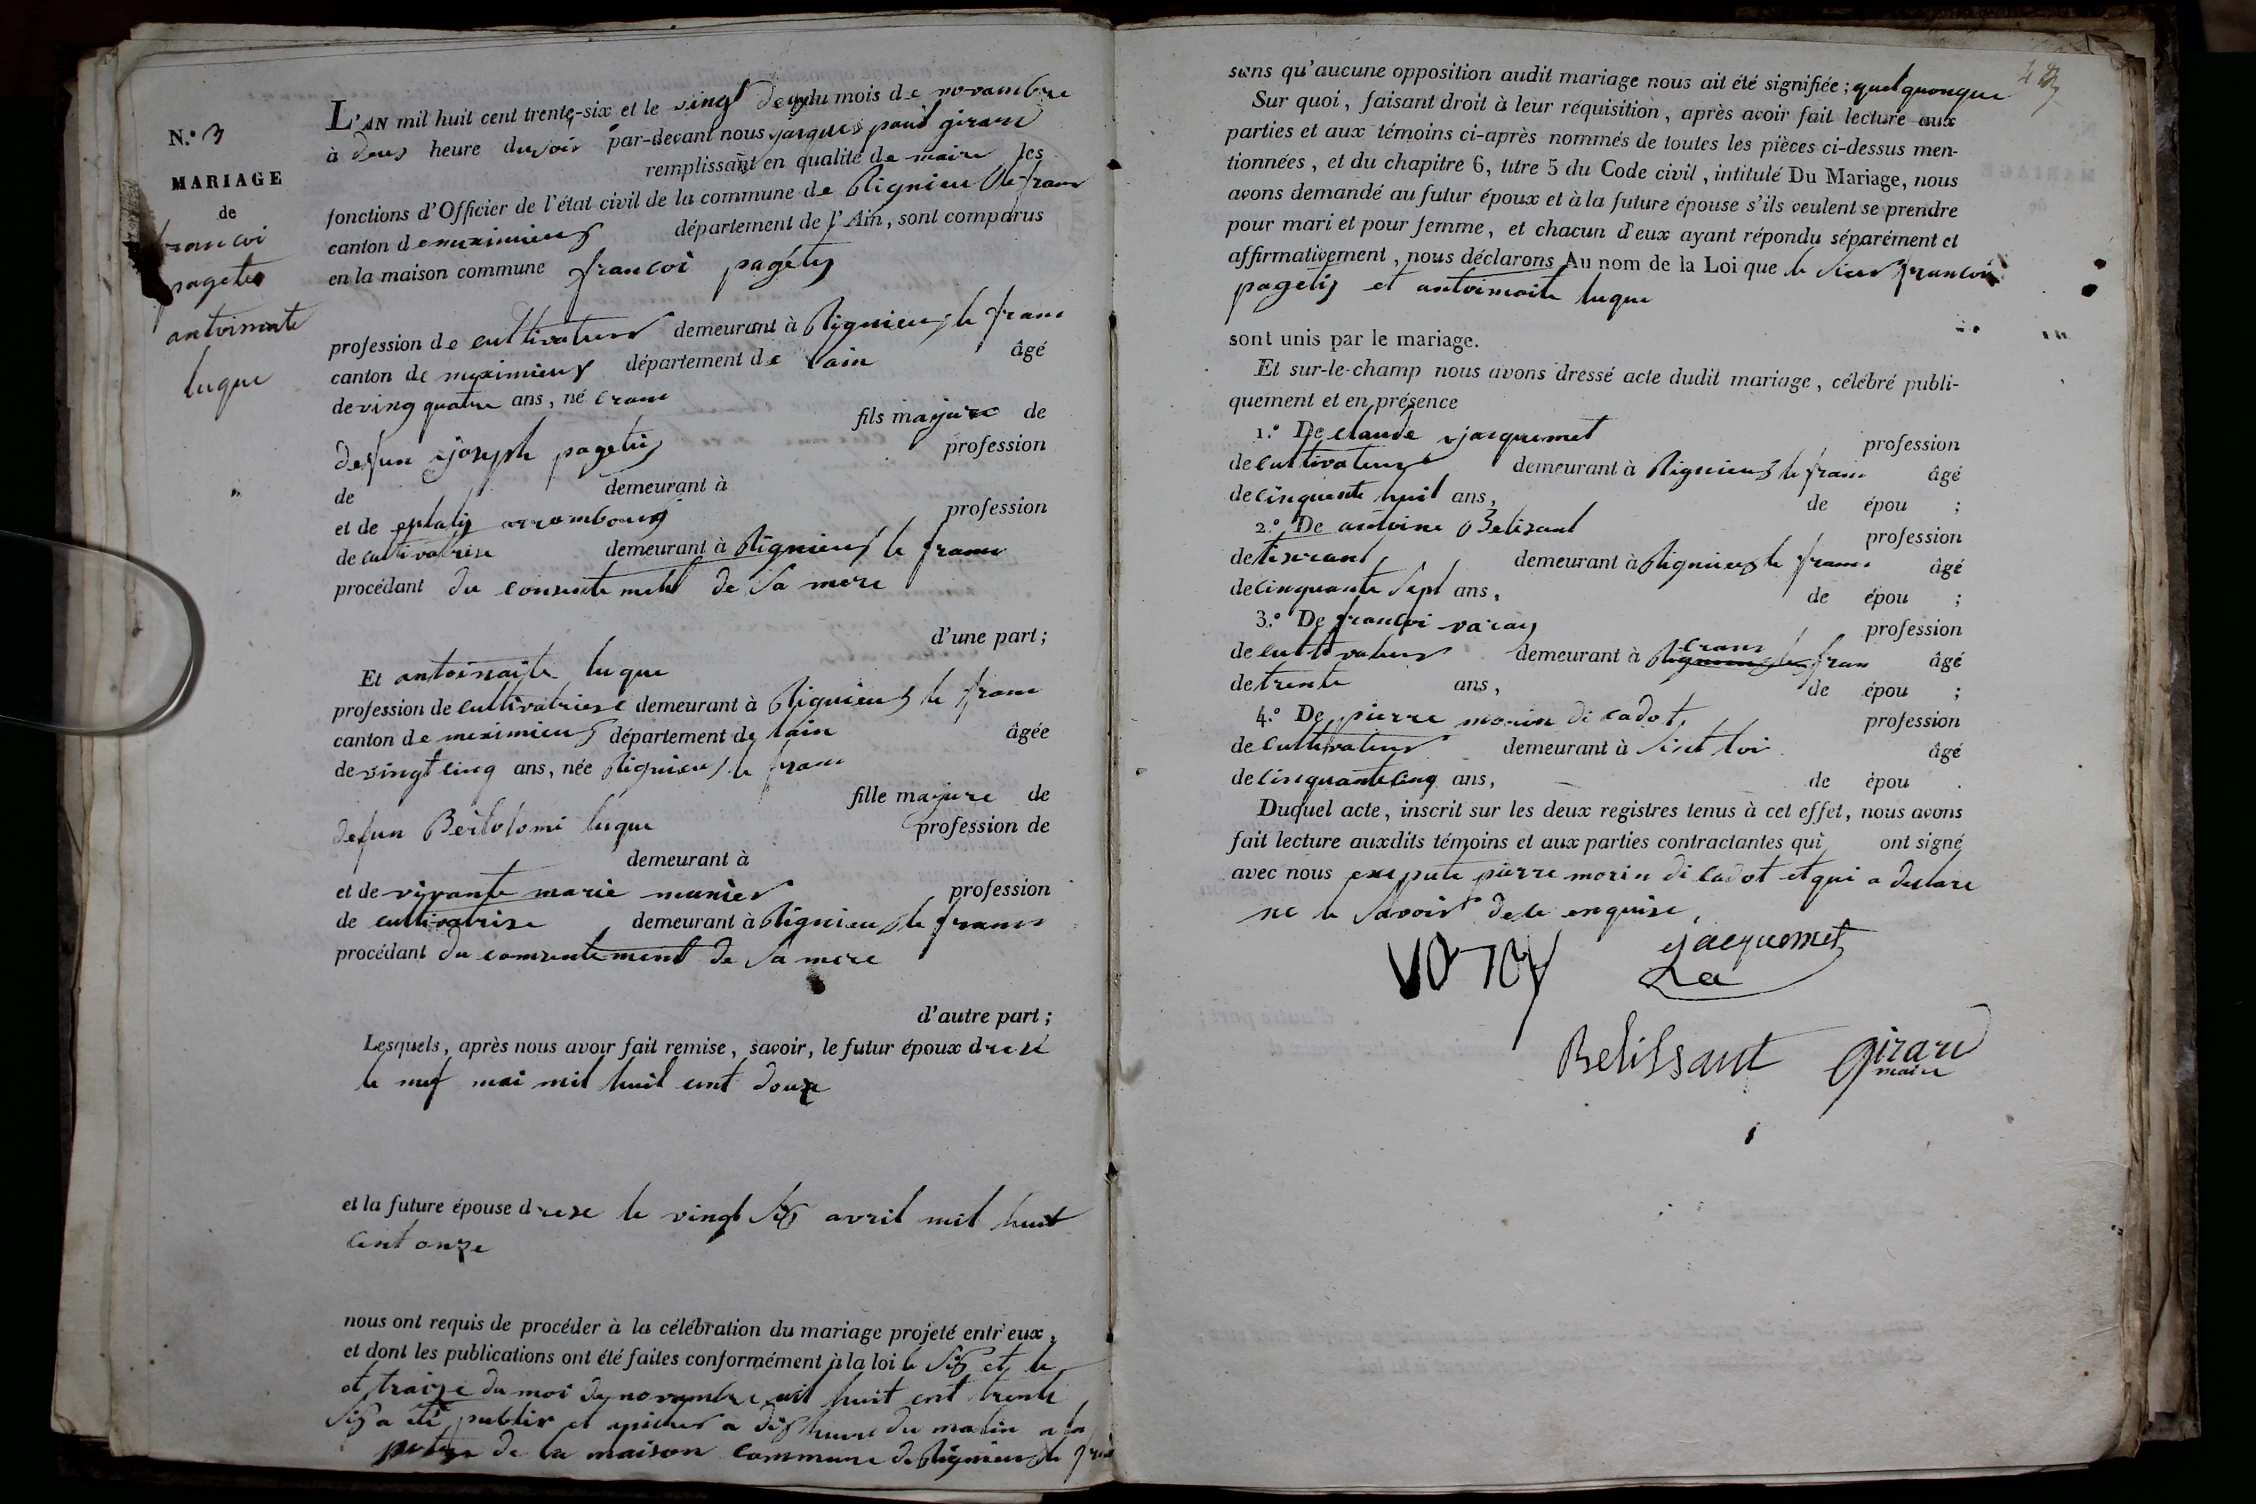 N.º 3
MARIAGE
de
francoi
pagetis
antoinaite
luque
L'AN mil huit cent trente-six et le vingt deux du mois de novambre
à deus heure du soir par-devant nous jacques paul girard
remplissant en qualité de maire les
fonctions d'Officier de l'état civil de la commune de Rignieux le franc
canton de meximieux département de l'Ain, sont comparus
en la maison commune francoi pagetis
profession de cultivateur demeurant à Rignieux le franc
canton de meximieux département de lain âgé
de ving quatre ans, né crans
fils majure de
defun joseph pagetis profession
de demeurant à
et de profession
de cultivatrise demeurant à Rignieux le franc
procédant du consentement de sa mere
d'une part;
Et antoinaite luque
profession de cultivatrise demeurant à Rignieux le franc
canton de meximieux département de lain âgée
de vingt cinq ans, née Rignieux le franc
fille majure de
defun Bertolomi luque profession de
demeurant à
et de vivante marie munier profession
de cultivatrise demeurant à Rignieux le franc
procédant du consentement de sa mere
d'autre part;
Lesquels, après nous avoir fait remise, savoir, le futur époux dresé
le nuf mai mil huit cent douze
et la future épouse drese le vingt six avril mil huit
cent onze
nous ont requis de procéder à la célébration du mariage projeté entr'eux,
et dont les publications ont été faites conformément à la loi le six et le
traize du moi de novembre mil huit cent trente
six a été publier et à dix heure du matin a la
porte de la maison commune de Rignieux le franc
sans qu'aucune opposition audit mariage nous ait été signifiée; quelquonque
Sur quoi, faisant droit à leur réquisition, après avoir fait lecture aux
parties et aux témoins ci-après nommés de toutes les pièces ci-dessus men-
tionnées, et du chapitre 6, titre 5 du Code civil, intitulé Du Mariage, nous
avons demandé au futur époux et à la future épouse s'ils veulent se prendre
pour mari et pour femme, et chacun d'eux ayant répondu séparément et
affirmativement, nous déclarons Au nom de la Loi que le sieur francoi
pagetis et antoinaite luque
sont unis par le mariage.
Et sur-le-champ nous avons dressé acte dudit mariage, célébré publi-
quement et en présence
1.º De claude jacquemet profession
de cultivateur demeurant à Rignieux le franc âgé
de cinquente huit ans, de épou ;
2.º De antoine Belisant profession
de tiserant demeurant à Rignieux le franc âgé
de cinquante sept ans, de épou ;
3.º De francoi varay profession
de cultivateur demeurant à crans Rignieux le franc âgé
de trente ans, de épou ;
4.º De pierre morin di cadot profession
de cultivateur demeurant à sint loi âgé
de cinquante cinq ans, de épou .
Duquel acte, inscrit sur les deux registres tenus à cet effet, nous avons
fait lecture auxdits témoins et aux parties contractantes qui ont signé
avec nous exepute pierre morin di cadot et qui a declare
ne le savoir de le enquise,
varay jacquemet
Belissant girard
maire